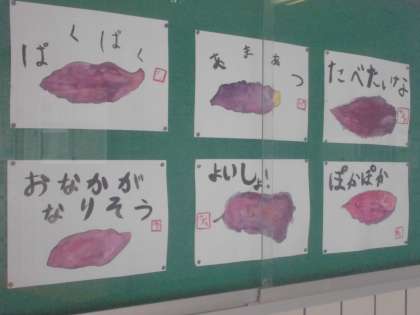 ぱくぱく
あまぁっ
たべたいな
おなかが
なりそう
よいしょ!
ぽかぽか